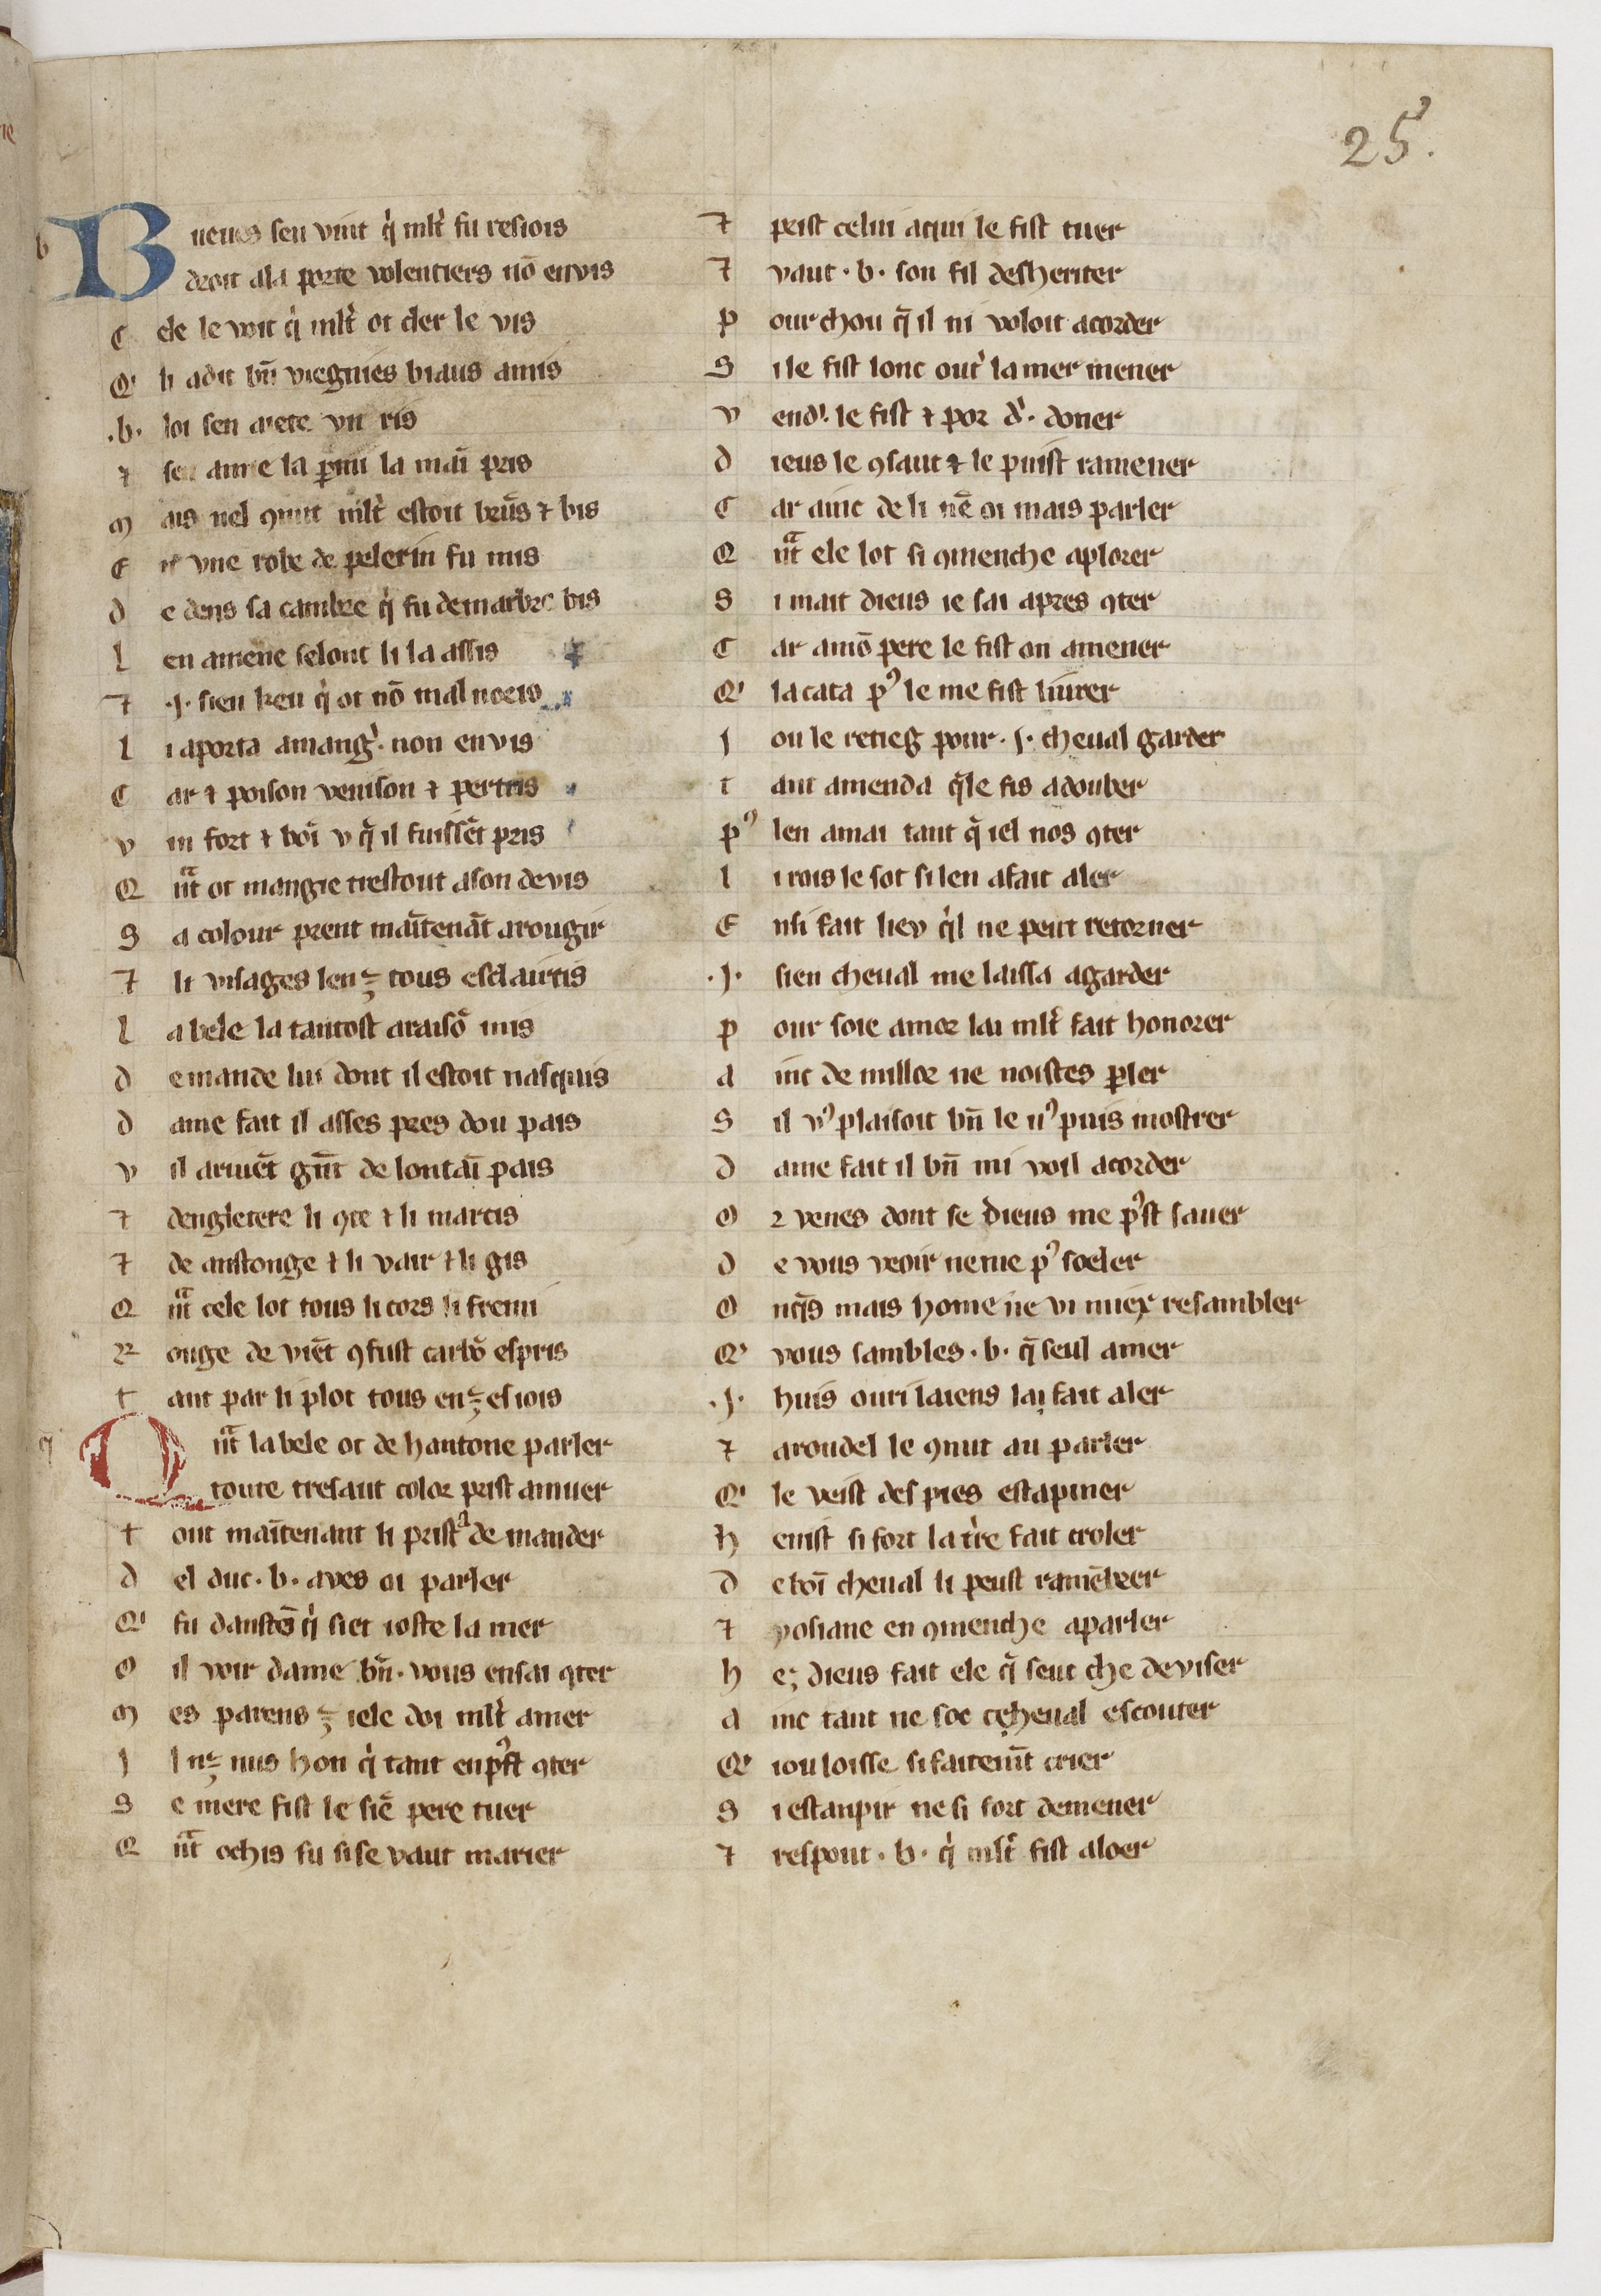 25.
Bueues sen vint q̍ mlt̍ fu resiois
droit ala porte volentiers nō envis
Cele le voit q̍ mlt̍ ot cler le vis
Q' li adit bn̄ viegnies biaus amis
.b. loi sen a iete vn ris
⁊ sen la p̱mi la maī pris
Mais nel ꝯnut mlt̍ estoit brūs ⁊ bis
En vne robe de pelerin fu mis
de dens sa cambre q̍ fu de marbre bis
len amene selonc li la assis
⁊ .j. sien keu q̍ ot nō mal
li aporta amang̍. non envis
Car ⁊ poison venison ⁊ pertris
vin fort ⁊ boī v q̄ il fuissēt pris
Qn̄t ot mangie trestout ason devis
Sa colour prent maītenāt arougir
⁊ li visages len ē tous esclairtis
la bele la tantost araisō mis
demande lui dont il estoit nasquis
dame fait il asses pres dou pais
v il ariuēt gn̄t de lontaī pais
⁊ dengletere li ꝯte ⁊ li marcis
⁊ de anstonge ⁊ li vair ⁊ li gis
Qn̄t cele lot tous li cors li fremi
Rouge de viēt ꝯ fust carbō espris
tant par li plot tous en ē esiois
Qn̄t la bele ot de hantone parler
toute tresaut color prist amuer
tout maītenant li prist a de mander
del duc .b. aves oi parler
Q' fu danstōe q̍ siet ioste la mer
Oil voir dame bn̄. vous ensai ꝯter
Mes parens ē iele doi mlt̍ amer
Il nē nus hon q̍ tant en pꝰst ꝯter
Se mere fist le siē pere tuer
Qn̄t ochis fu si se vaut marier
⁊ prist celui aqui le fist tuer
⁊ vaut .b. son fil desheriter
pour chou q̄ il ni voloit acorder
Sile fist lonc out̍ la mer mener
vend̍. le fist ⁊ por d̍. doner
dieus le ꝯsaut ⁊ le puist ramener
Car ainc de li nē oi mais parler
Qn̄t ele lot si ꝯmenche aplorer
Si mait dieus ie sai apres ꝯter
Car amō pere le fist on amener
Q' lacata pꝰ le me fist liurer
Jou le retieg pour .j. cheual garder
tant amenda q̄le fis adouber
pꝰ len amai tant q̄ iel nos ꝯter
li rois le sot si len afait aler
Ensi fait liev q̍l ne peut retorner
.j. sien cheual me laissa agarder
pour soie amor lai mlt̍ fait honorer
ainc de millor ne noistes p̱ler
Sil vꝰ plaisoit bn̄ le uꝰ puis mostrer
dame fait il bn̄ mi voil acorder
Or venes dont se dieus me pꝰst sauer
de vous veoir neme pꝰ soeler
Onq̄s mais home ne vi miex resambler
Q' vous sambles .b. q̄ seul amer
.j. huis ouri laiens lai fait aler
⁊ aroudel le ꝯnut au parler
Q' le veist des pies estapiner
henist si fort la t̍re fait croler
de boī cheual li peust ramēbrer
⁊ yosiane en ꝯmenche aparler
he; dieus fait ele q̄ seut che deviser
ainc tant ne soc cheual escouter
Q' iou loisse si faitemn̄t crier
Si estanpir ne si fort demener
⁊ respont .b. q̍ mlt̍ fist aloer